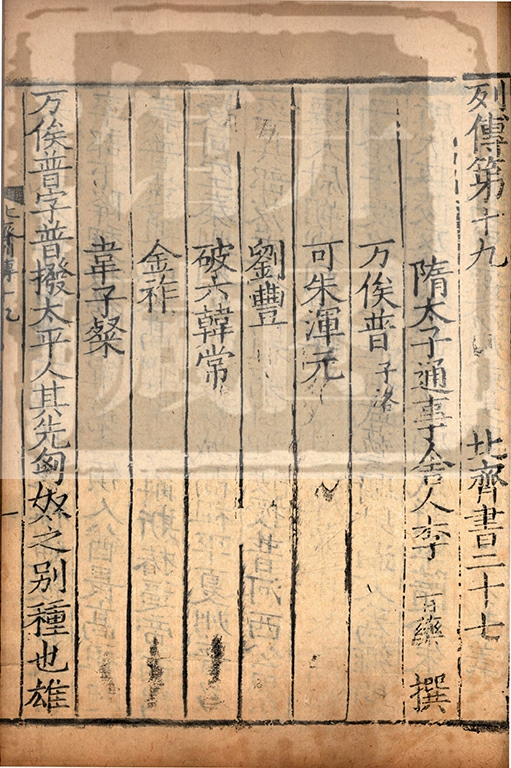 列傳第十九 北齊書二十七
隋太子通事舍人李 百藥 撰
万俟普 子洛
可朱渾元
劉豐
破六韓常
金祚
韋子粲
万俟普字普撥太平人其先匈奴之别種也雄